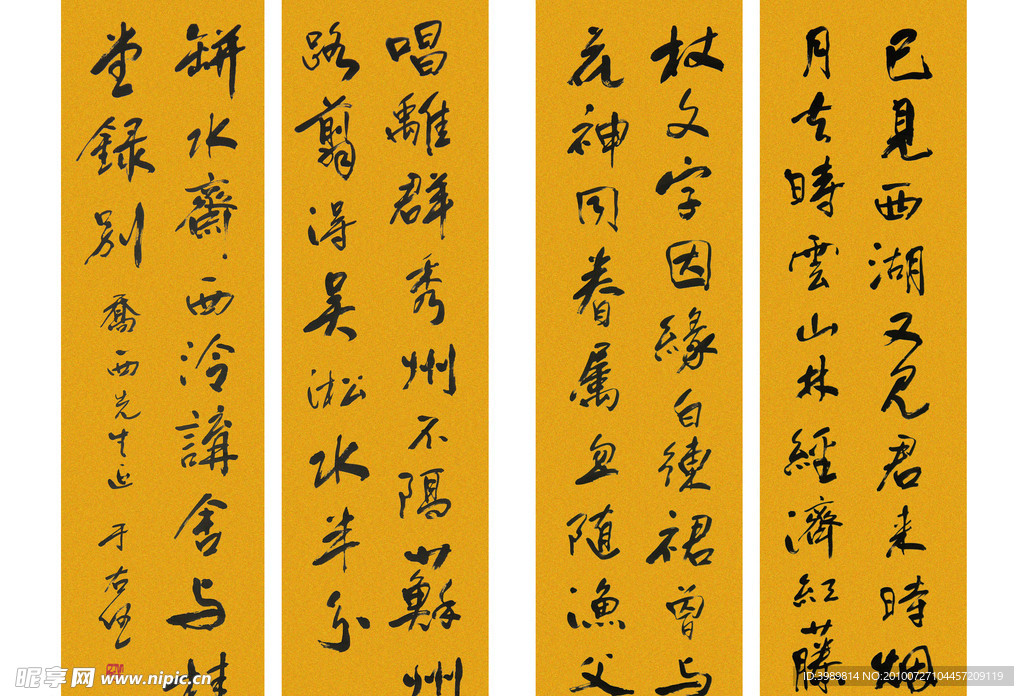 已見西湖又見君来時烟
月去時雲山林經濟紅藤
杖文字因緣白練裙曾与
花神同眷属忽随漁父
唱離群秀州不隔蘇州
路翦得吴淞水半分
缾水齋西泠講舍与精
堂録别
喬西先生正 于右任
昵享网 www.nipic.cn
ID:3989814 NO:20100727104457209119